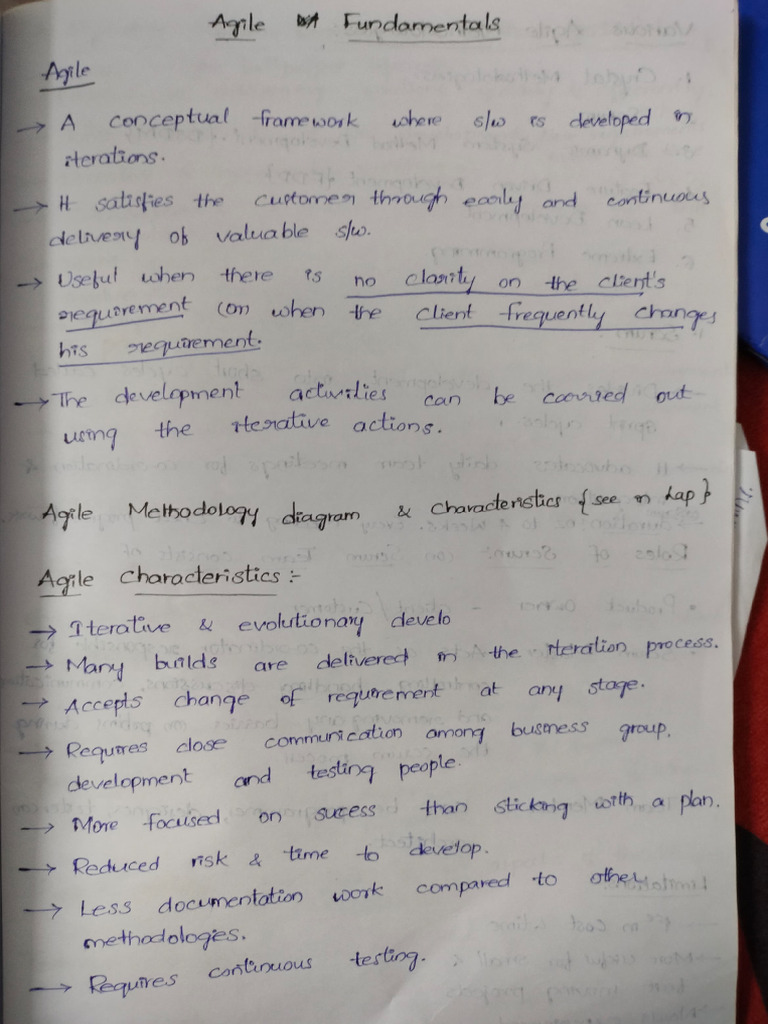 Agile Fundamentals
Agile
→ A conceptual framework where s/w is developed in
iterations.
→ It satisfies the customer through early and continuous
delivery of valuable s/w.
→ Useful when there is no clarity on the client's
requirement (or) when the client frequently changes
his requirement.
→ The development activities can be carried out
using the iterative actions.
Agile Methodology diagram & characteristics {see in Lap}
Agile Characteristics :-
→ Iterative & evolutionary develo
→ Many builds are delivered in the iteration process.
→ Accepts change of requirement at any stage.
→ Requires close communication among business group,
development and testing people.
→ More focused on sucess than sticking with a plan.
→ Reduced risk & time to develop.
→ Less documentation work compared to other
methodologies.
→ Requires continuous testing.